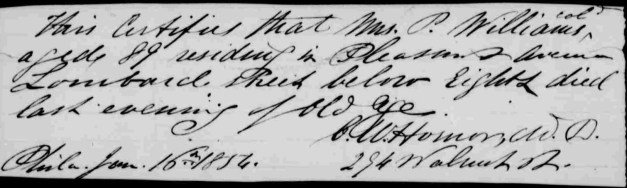 This Certifies that Mrs. P. Williams, col'd
aged 89 residing in Pleasant avenue
Lombard Street below Eighth died
last evening of Old age
C. W. Hornor, M. D.
Phila. Jan. 16th 1854. 294 Walnut St.